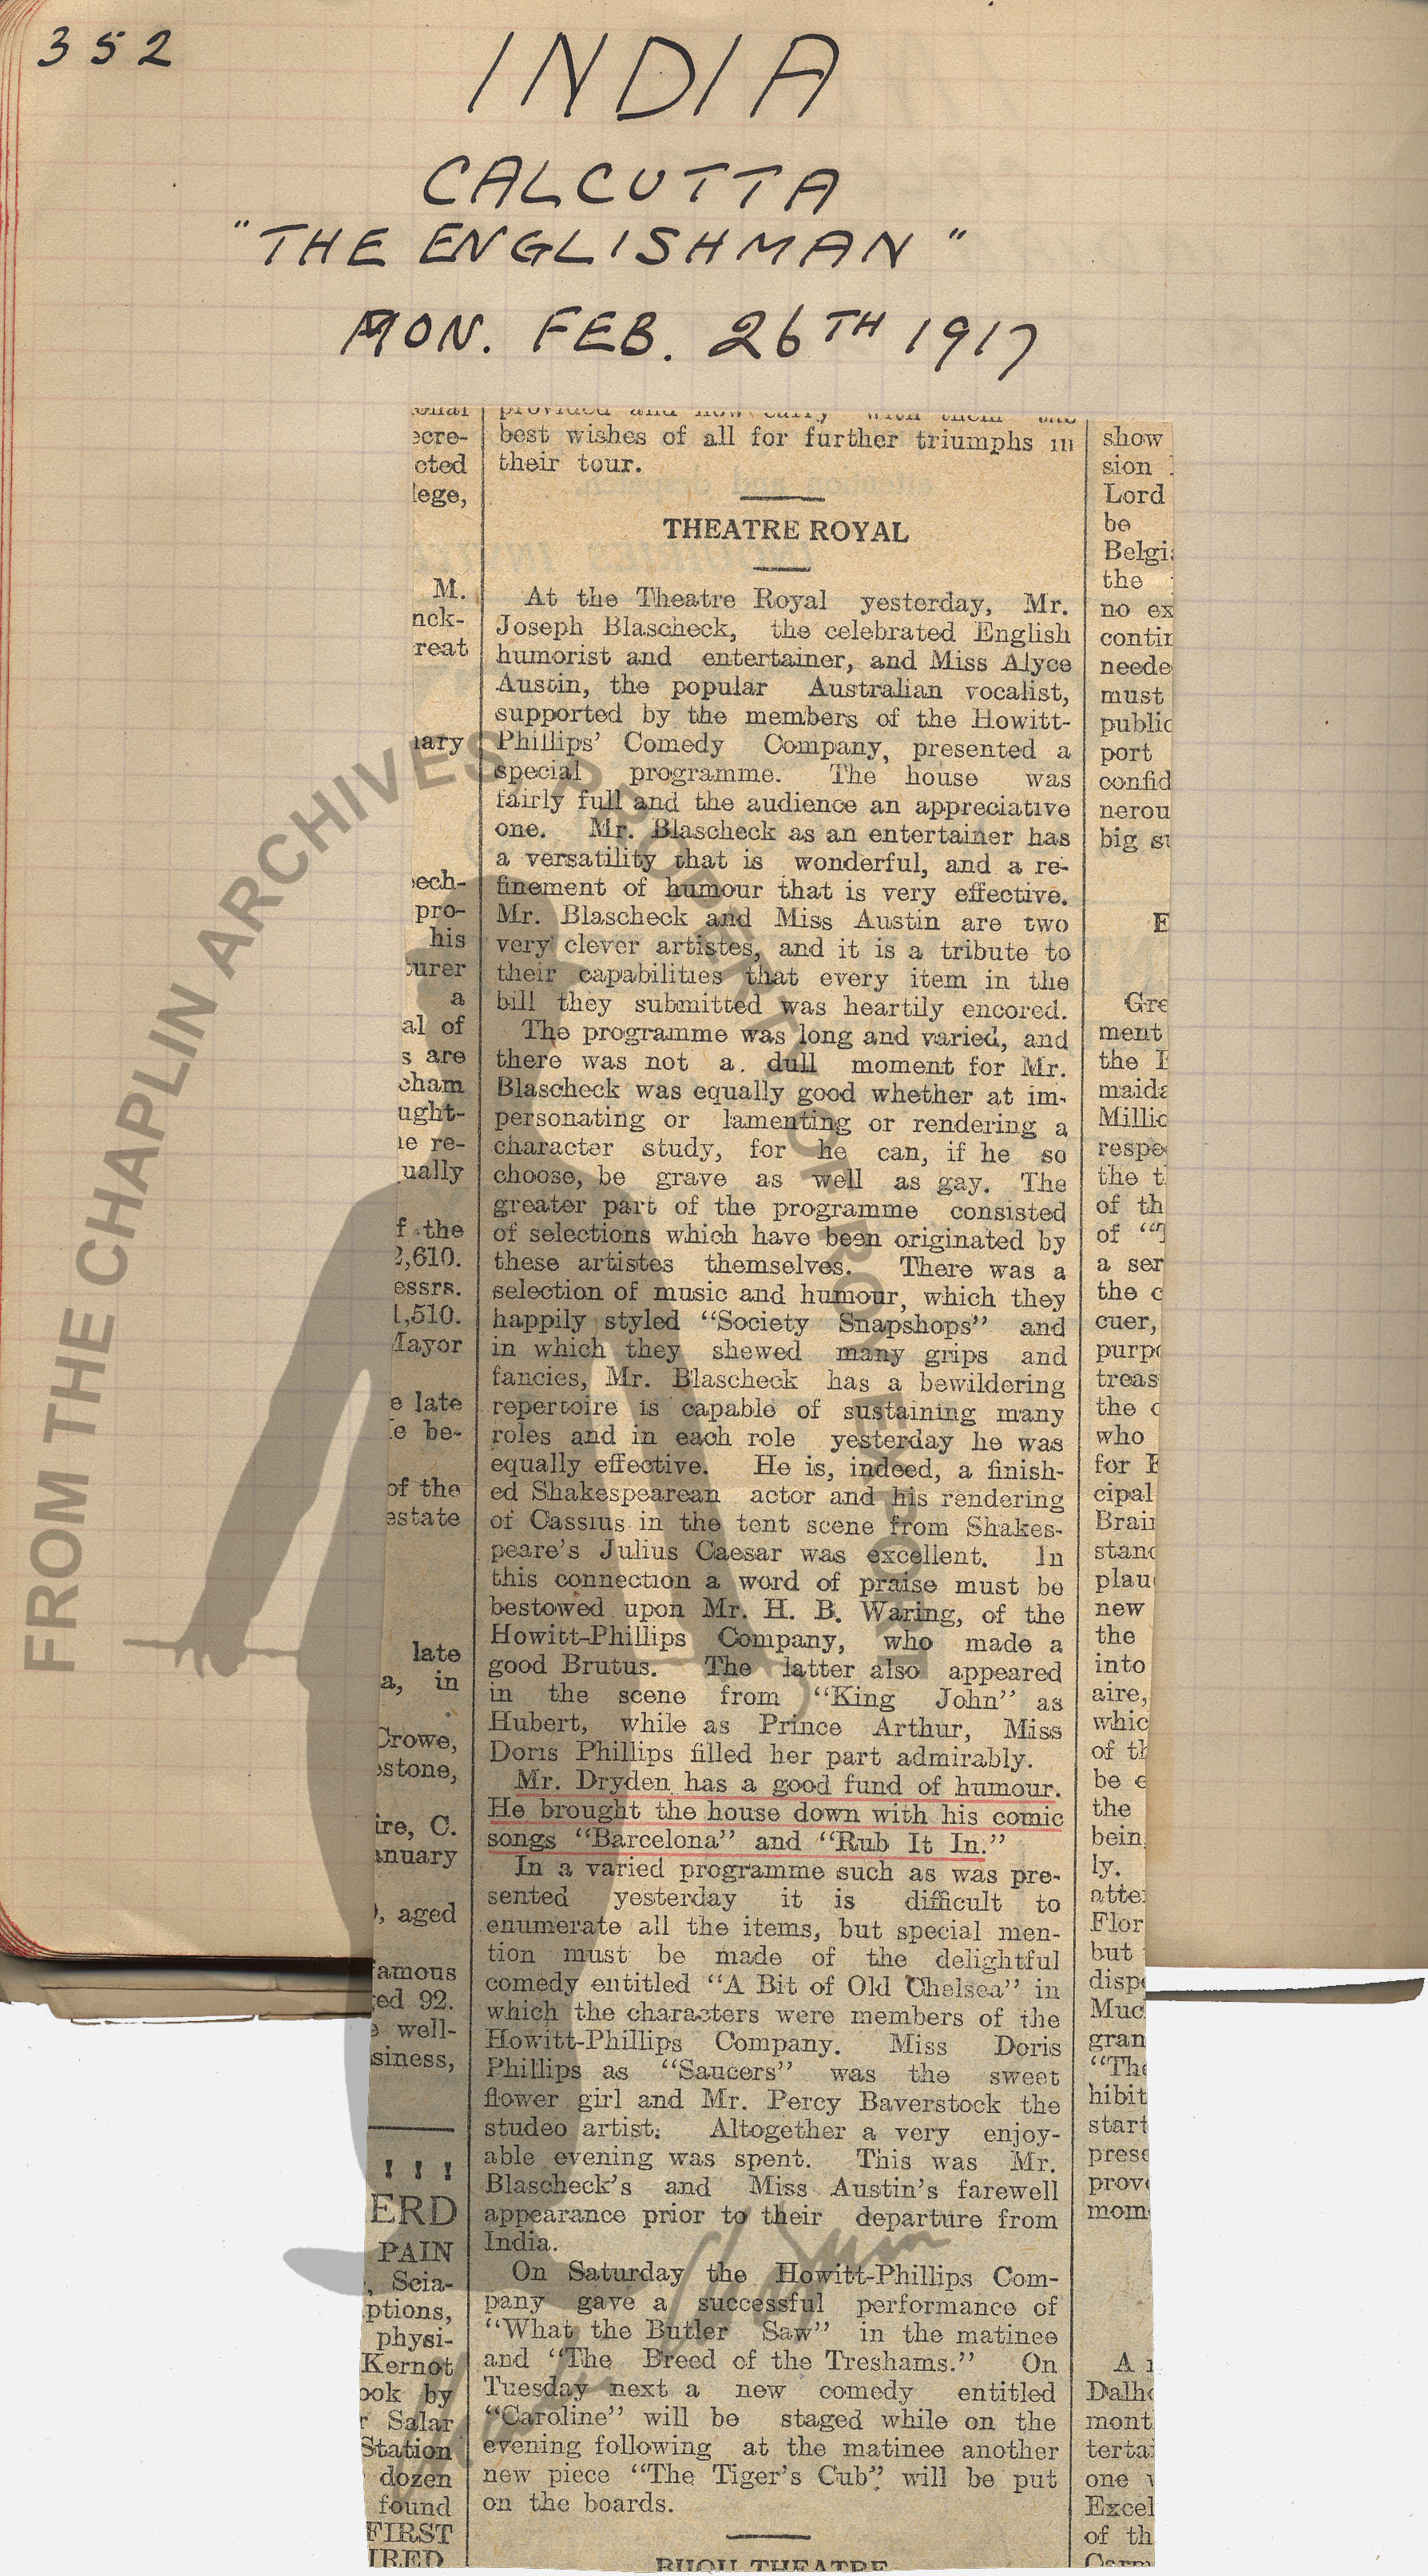 352
INDIA
CALCUTTA
"THE ENGLISHMAN"
MON. FEB. 26TH 1917
best wishes of all for further triumphs in
their tour.
THEATRE ROYAL
At the Theatre Royal yesterday, Mr.
Joseph Blascheck, the celebrated English
humorist and entertainer, and Miss Alyce
Austin, the popular Australian vocalist,
supported by the members of the Howitt-
Phillips' Comedy Company, presented a
special programme. The house was
fairly full and the audience an appreciative
one. Mr. Blascheck as an entertainer has
a versatility that is wonderful, and a re-
finement of humour that is very effective.
Mr. Blascheck and Miss Austin are two
very clever artistes, and it is a tribute to
their capabilities that every item in the
bill they submitted was heartily encored.
The programme was long and varied, and
there was not a. dull moment for Mr.
Blascheck was equally good whether at im-
personating or lamenting or rendering a
character study, for he can, if he so
choose, be grave as well as gay. The
greater part of the programme consisted
of selections which have been originated by
these artistes themselves. There was a
selection of music and humour, which they
happily styled "Society Snapshops" and
in which they shewed many grips and
fancies, Mr. Blascheck has a bewildering
repertoire is capable of sustaining many
roles and in each role yesterday he was
equally effective. He is, indeed, a finish-
ed Shakespearean actor and his rendering
of Cassius in the tent scene from Shakes-
peare's Julius Caesar was excellent. In
this connection a word of praise must be
bestowed upon Mr. H. B. Waring, of the
Howitt-Phillips Company, who made a
good Brutus. The latter also appeared
in the scene from "King John" as
Hubert, while as Prince Arthur, Miss
Doris Phillips filled her part admirably.
Mr. Dryden has a good fund of humour.
He brought the house down with his comic
songs "Barcelona" and "Rub It In."
In a varied programme such as was pre-
sented yesterday it is difficult to
enumerate all the items, but special men-
tion must be made of the delightful
comedy entitled "A Bit of Old Chelsea" in
which the characters were members of the
Howitt-Phillips Company. Miss Doris
Phillips as "Saucers" was the sweet
flower girl and Mr. Percy Baverstock the
studeo artist. Altogether a very enjoy-
able evening was spent. This was Mr.
Blascheck's and Miss Austin's farewell
appearance prior to their departure from
India.
On Saturday the Howitt-Phillips Com-
pany gave a successful performance of
"What the Butler Saw" in the matinee
and "The Breed of the Treshams." On
Tuesday next a new comedy entitled
"Caroline" will be staged while on the
evening following at the matinee another
new piece "The Tiger's Cub" will be put
on the boards.
BIJOU THEATRE
FROM THE CHAPLIN ARCHIVES PROPERTY OF ROY EXPORT